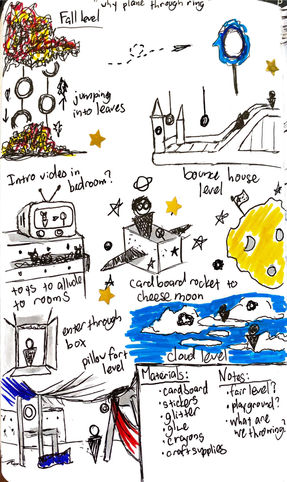 "why plane through ring
Fall level
jumping
into leaves
bounce house
level
Intro video in
bedroom?
toys to allude
to rooms
cardboard rocket to
cheese moon
enter through
box
pillow fort
level
cloud level
Materials:
• cardboard
• stickers
• glitter
• glue
• crayons
• craft supplies
Notes:
• fair level?
• playground?
• what are
we throwing?